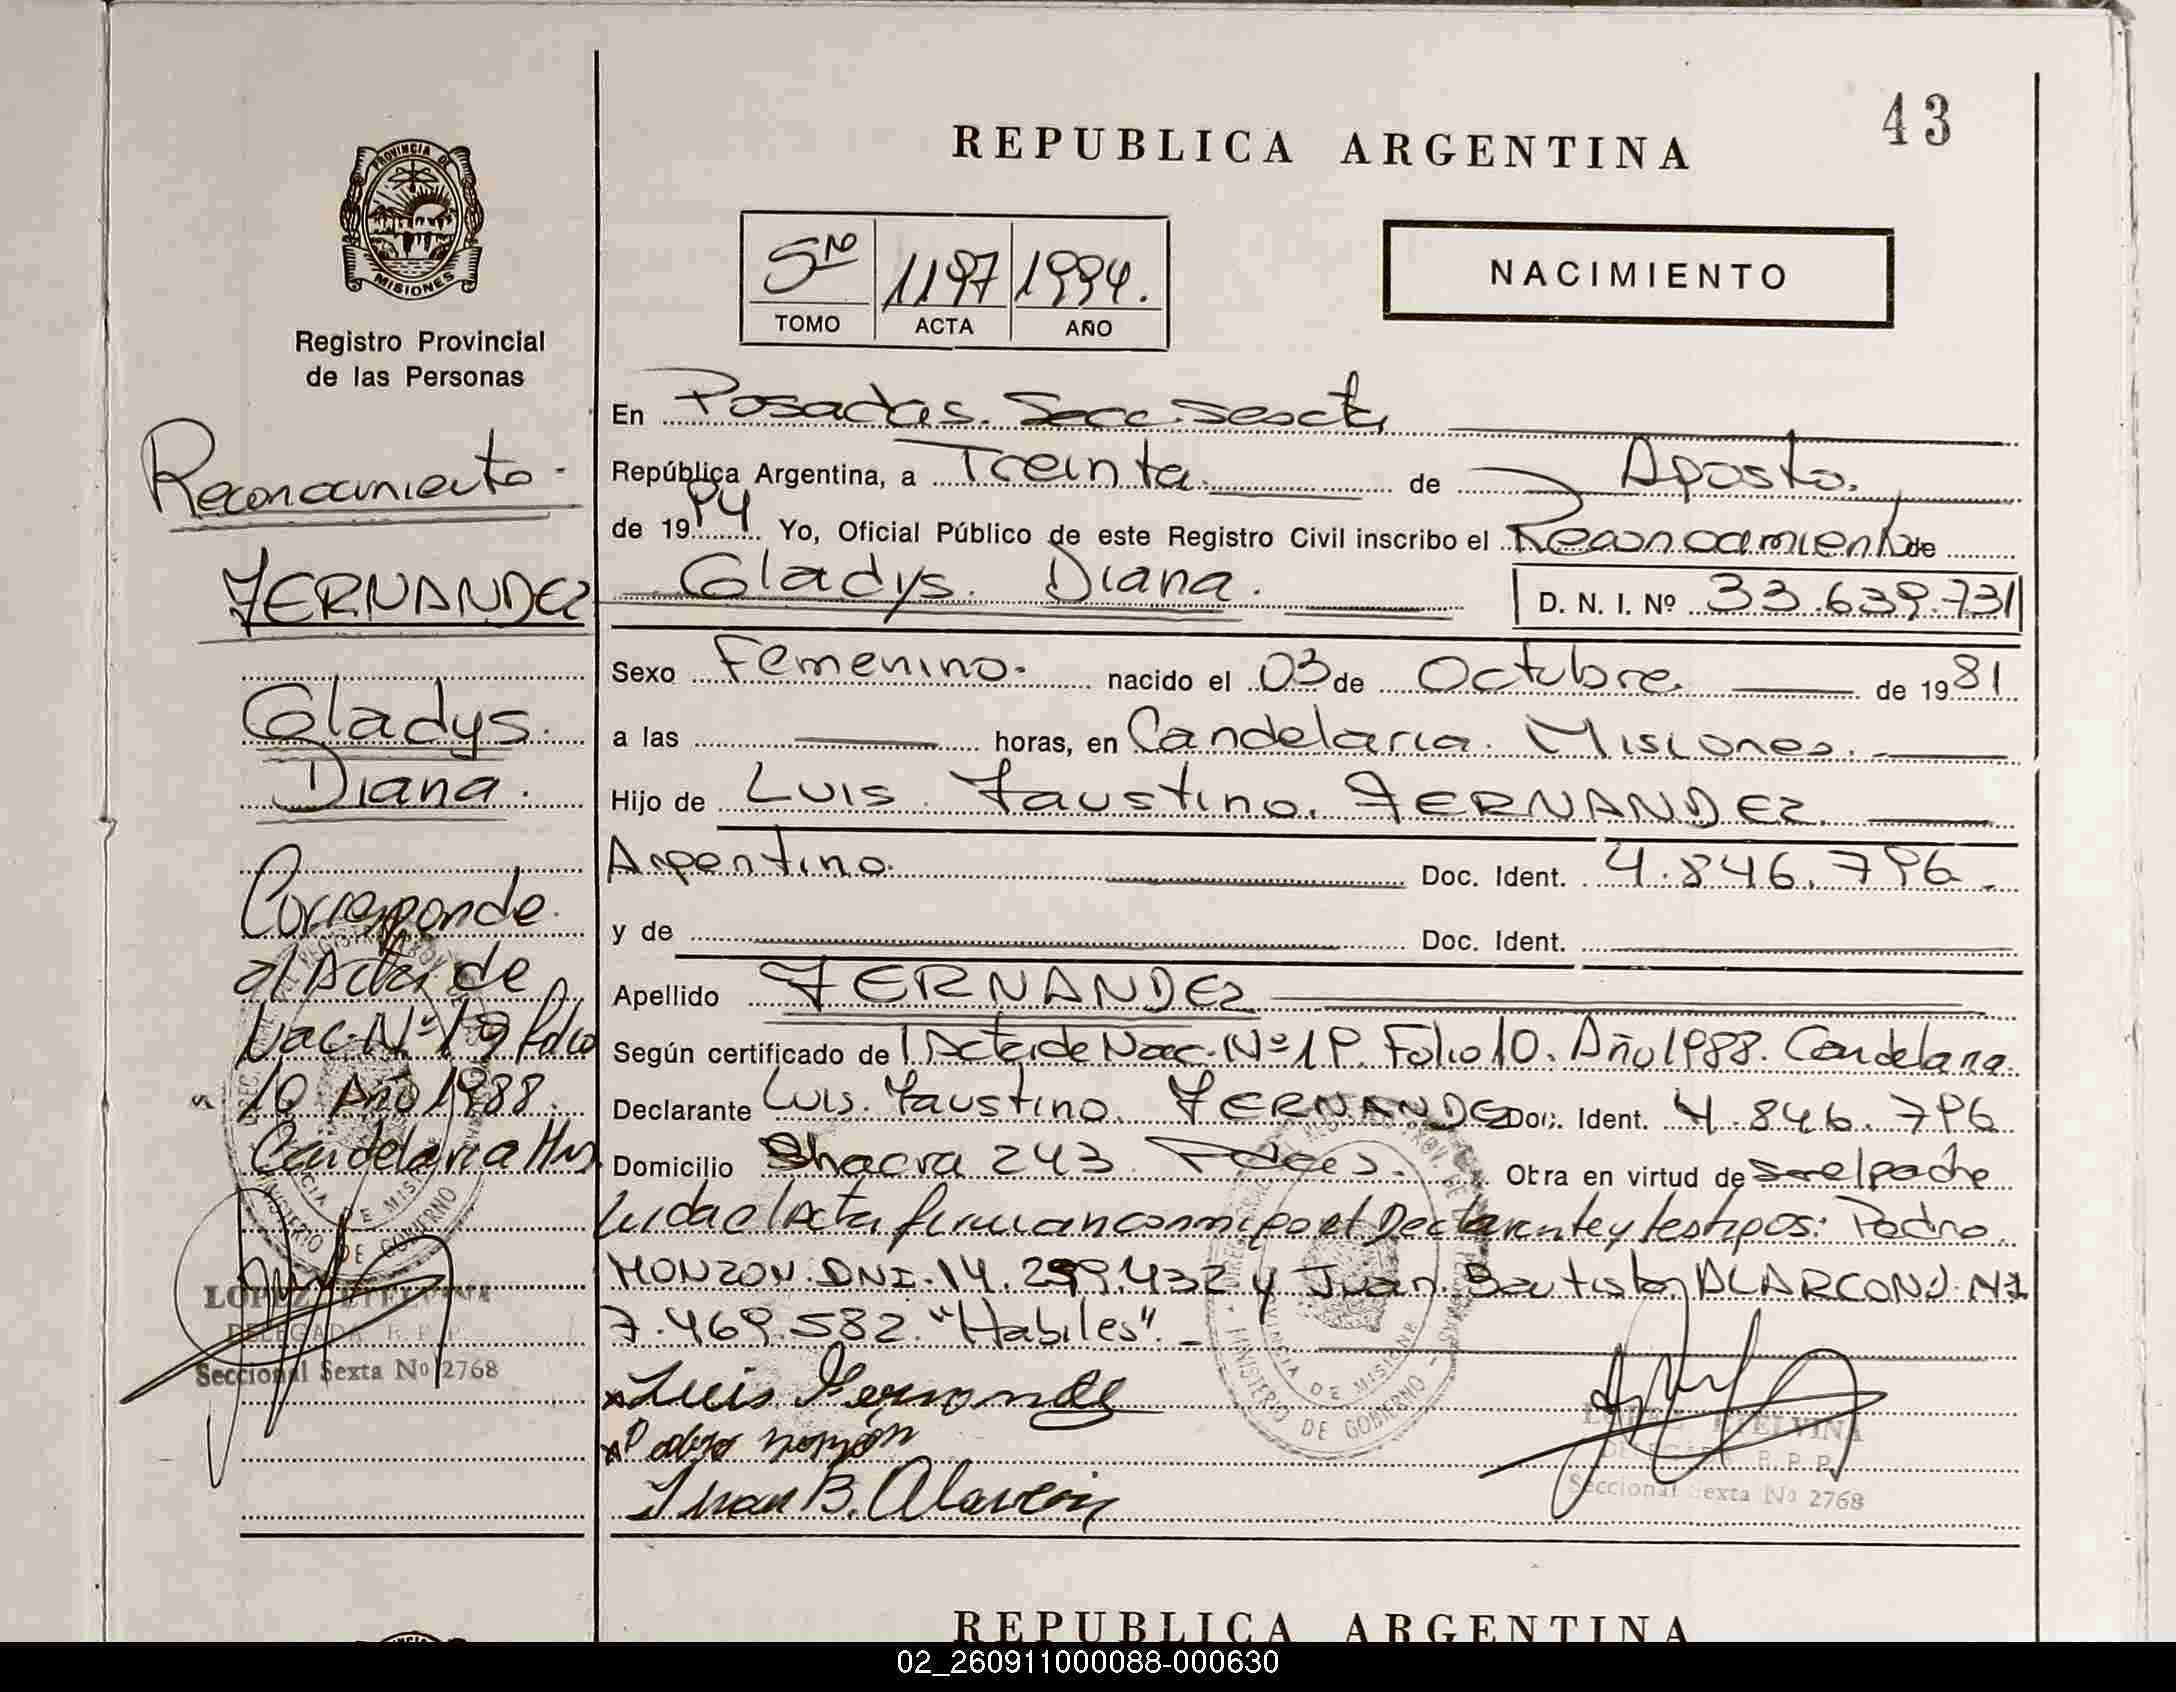 43
REPUBLICA ARGENTINA
PROVINCIA DE
MISIONES
Registro Provincial
de las Personas
5to 1197 1994.
TOMO ACTA AÑO
NACIMIENTO
Reconocimiento.
FERNANDEZ
Gladys.
Diana.
Corresponde
al Acta de
Nac. Nº 19 folio
10 Año 1988.
Candelaria Mns
LOPEZ ETELVINA
DELEGADA R. P. P.
Seccional Sexta Nº 2768
En Posadas. Secc. Sexta
República Argentina, a Treinta de Agosto.
de 1994 Yo, Oficial Público de este Registro Civil inscribo el Reconocimiento de
Gladys. Diana. D. N. I. Nº 33.639.731
Sexo Femenino. nacido el 03 de Octubre. de 1981
a las horas, en Candelaria. Misiones.
Hijo de Luis. Faustino. FERNANDEZ.
Argentino. Doc. Ident. 4.846.796.
y de Doc. Ident.
Apellido FERNANDEZ
Según certificado de Acta de Nac. Nº 19. Folio 10. Año 1988. Candelaria.
Declarante Luis. Faustino. FERNANDEZ Doc. Ident. 4.846.796
Domicilio Chacra 243. Pdas. Obra en virtud de ser el padre
Leida el Acta firman conmigo el Declarante y testigos: Pedro.
MONZON. DNI. 14.299.432 y Juan. Bautista ALARCON
7.469.582. "Habiles".
Luis Fernandez
Pedro monzón
Juan B. Alarcón
MINISTERIO DE GOBIERNO
PROVINCIA DE MISIONES
LOPEZ ETELVINA
DELEGADA R. P. P.
Seccional Sexta Nº 2768
REPUBLICA ARGENTINA
02_260911000088-000630